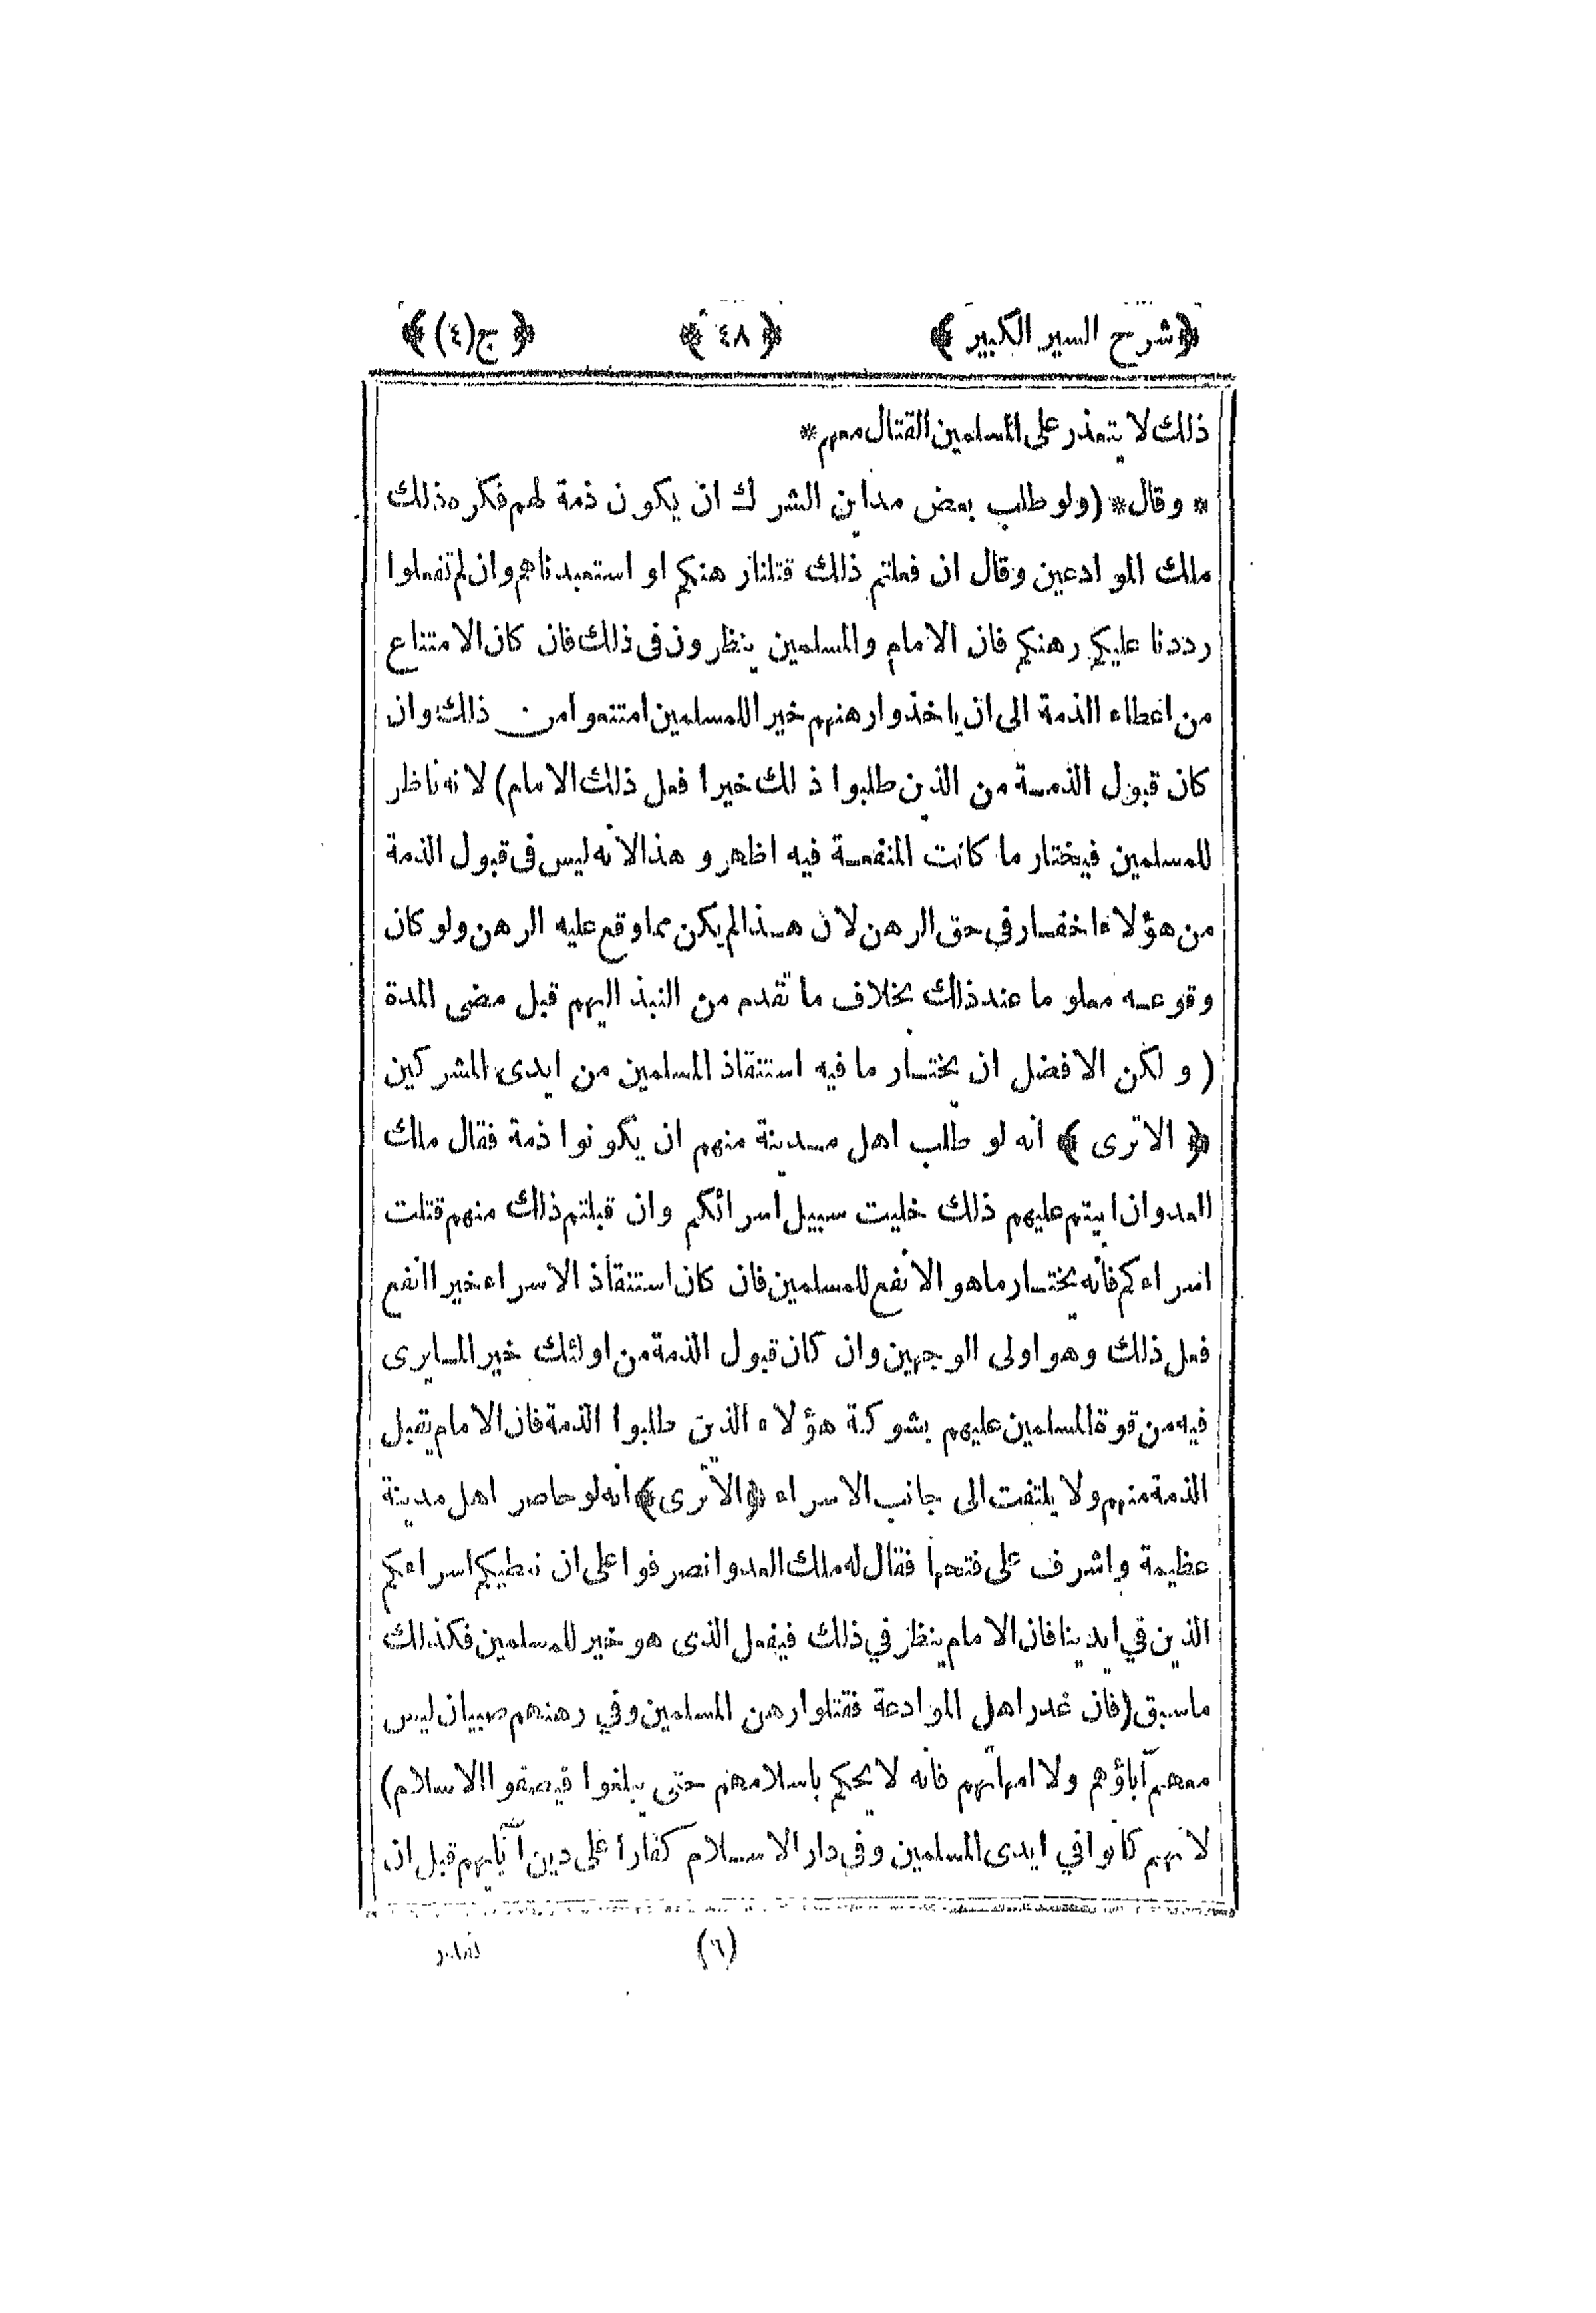 ﴿شرح السير الكبير﴾ ﴿٤٨﴾ ﴿ج(٤)﴾
ذلك لا يتعذر على المسلمين القتال معهم*
* وقال* (ولو طلب بعض مداين الشرك ان يكون ذمة لهم فكره ذلك
ملك الموادعين وقال ان فعلتم ذلك قتلنا رهنكم او استعبدناهم وان لم تفعلوا
رددنا عليكم رهنكم فان الامام والمسلمين ينظرون فى ذلك فان كان الامتناع
من اعطاء الذمة الى ان ياخذوا رهنهم خيرا للمسلمين امتنعوا من ذلك وان
كان قبول الذمة من الذين طلبوا ذلك خيرا فعل ذلك الامام) لانه ناظر
للمسلمين فيختار ما كانت المنفعة فيه اظهر وهذا لانه ليس فى قبول الذمة
من هؤلاء اخفار في حق الرهن لان هذا لم يكن مما وقع عليه الرهن ولو كان
وقوعه معلوما عند ذلك بخلاف ما تقدم من النبذ اليهم قبل مضى المدة
(ولكن الافضل ان يختار ما فيه استنقاذ المسلمين من ايدى المشركين
﴿الا ترى﴾ انه لو طلب اهل مدينة منهم ان يكونوا ذمة فقال ملك
العدو ان ابيتم عليهم ذلك خليت سبيل اسرائكم وان قبلتم ذلك منهم قتلت
اسراءكم فانه يختار ما هو الانفع للمسلمين فان كان استنقاذ الاسراء خيرا انفع
فعل ذلك وهو اولى الوجهين وان كان قبول الذمة من اولئك خيرا لما يرى
فيه من قوة المسلمين عليهم بشوكة هؤلاء الذين طلبوا الذمة فان الامام يقبل
الذمة منهم ولا يلتفت الى جانب الاسراء ﴿الا ترى﴾ انه لو حاصر اهل مدينة
عظيمة واشرف على فتحها فقال له ملك العدو انصرفوا على ان نعطيكم اسراءكم
الذين في ايدينا فان الامام ينظر في ذلك فيفعل الذى هو خير للمسلمين فكذلك
ما سبق (فان غدر اهل الموادعة فقتلوا رهن المسلمين وفي رهنهم صبيان ليس
معهم آباؤهم ولا امهاتهم فانه لا يحكم باسلامهم حتى يبلغوا فيصفوا الاسلام)
لانهم كانوا في ايدى المسلمين وفي دار الاسلام كفارا على دين آبايهم قبل ان
(٦)